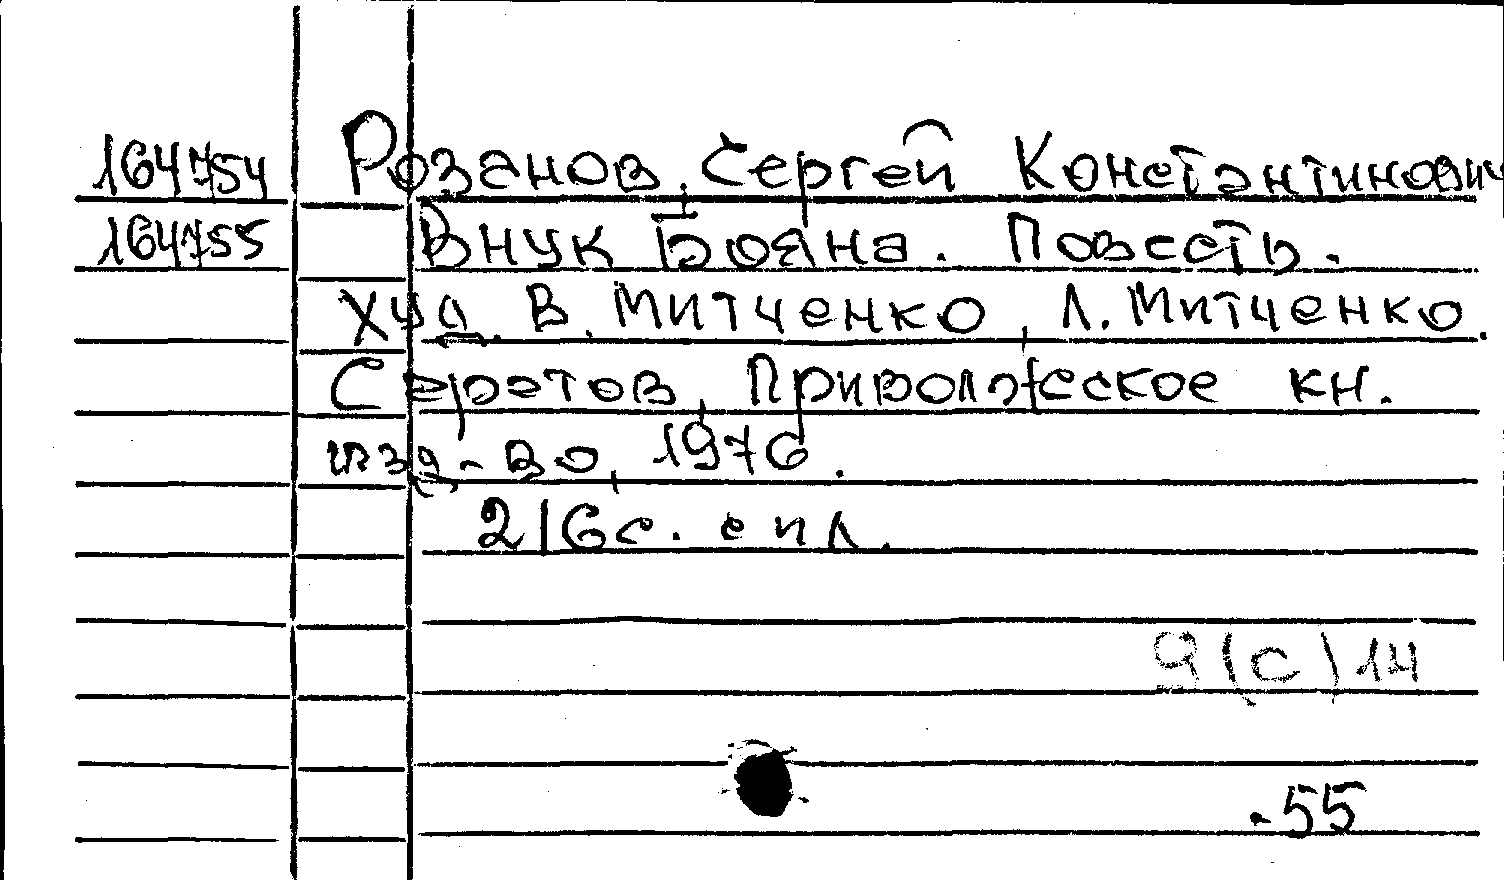 164754 Розанов, Сергей Константинович
164755 Внук Бояна. Повесть.
Худ. В. Митченко, Л. Митченко.
Саратов, Приволжское кн.
изд-во, 1976.
216с. с ил.
9(С)14
-55